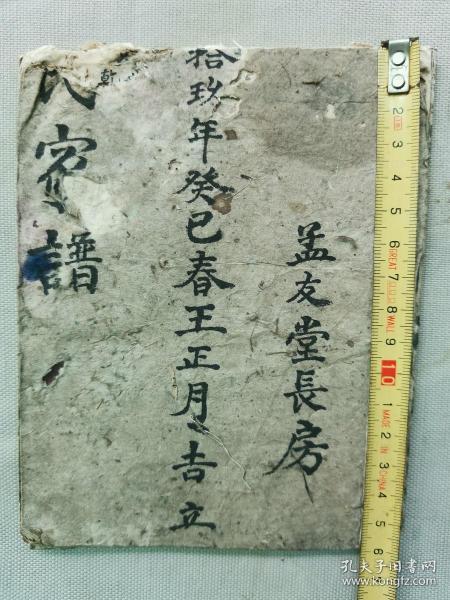 孟友堂長房
拾玖年癸巳春王正月吉立
乾
氏宗譜
2
3
4
5
6
7
8
9
10
1
2
3
4
5
6
GREAT WALL
MADE IN CHINA
孔夫子旧书网
www.kongfz.com